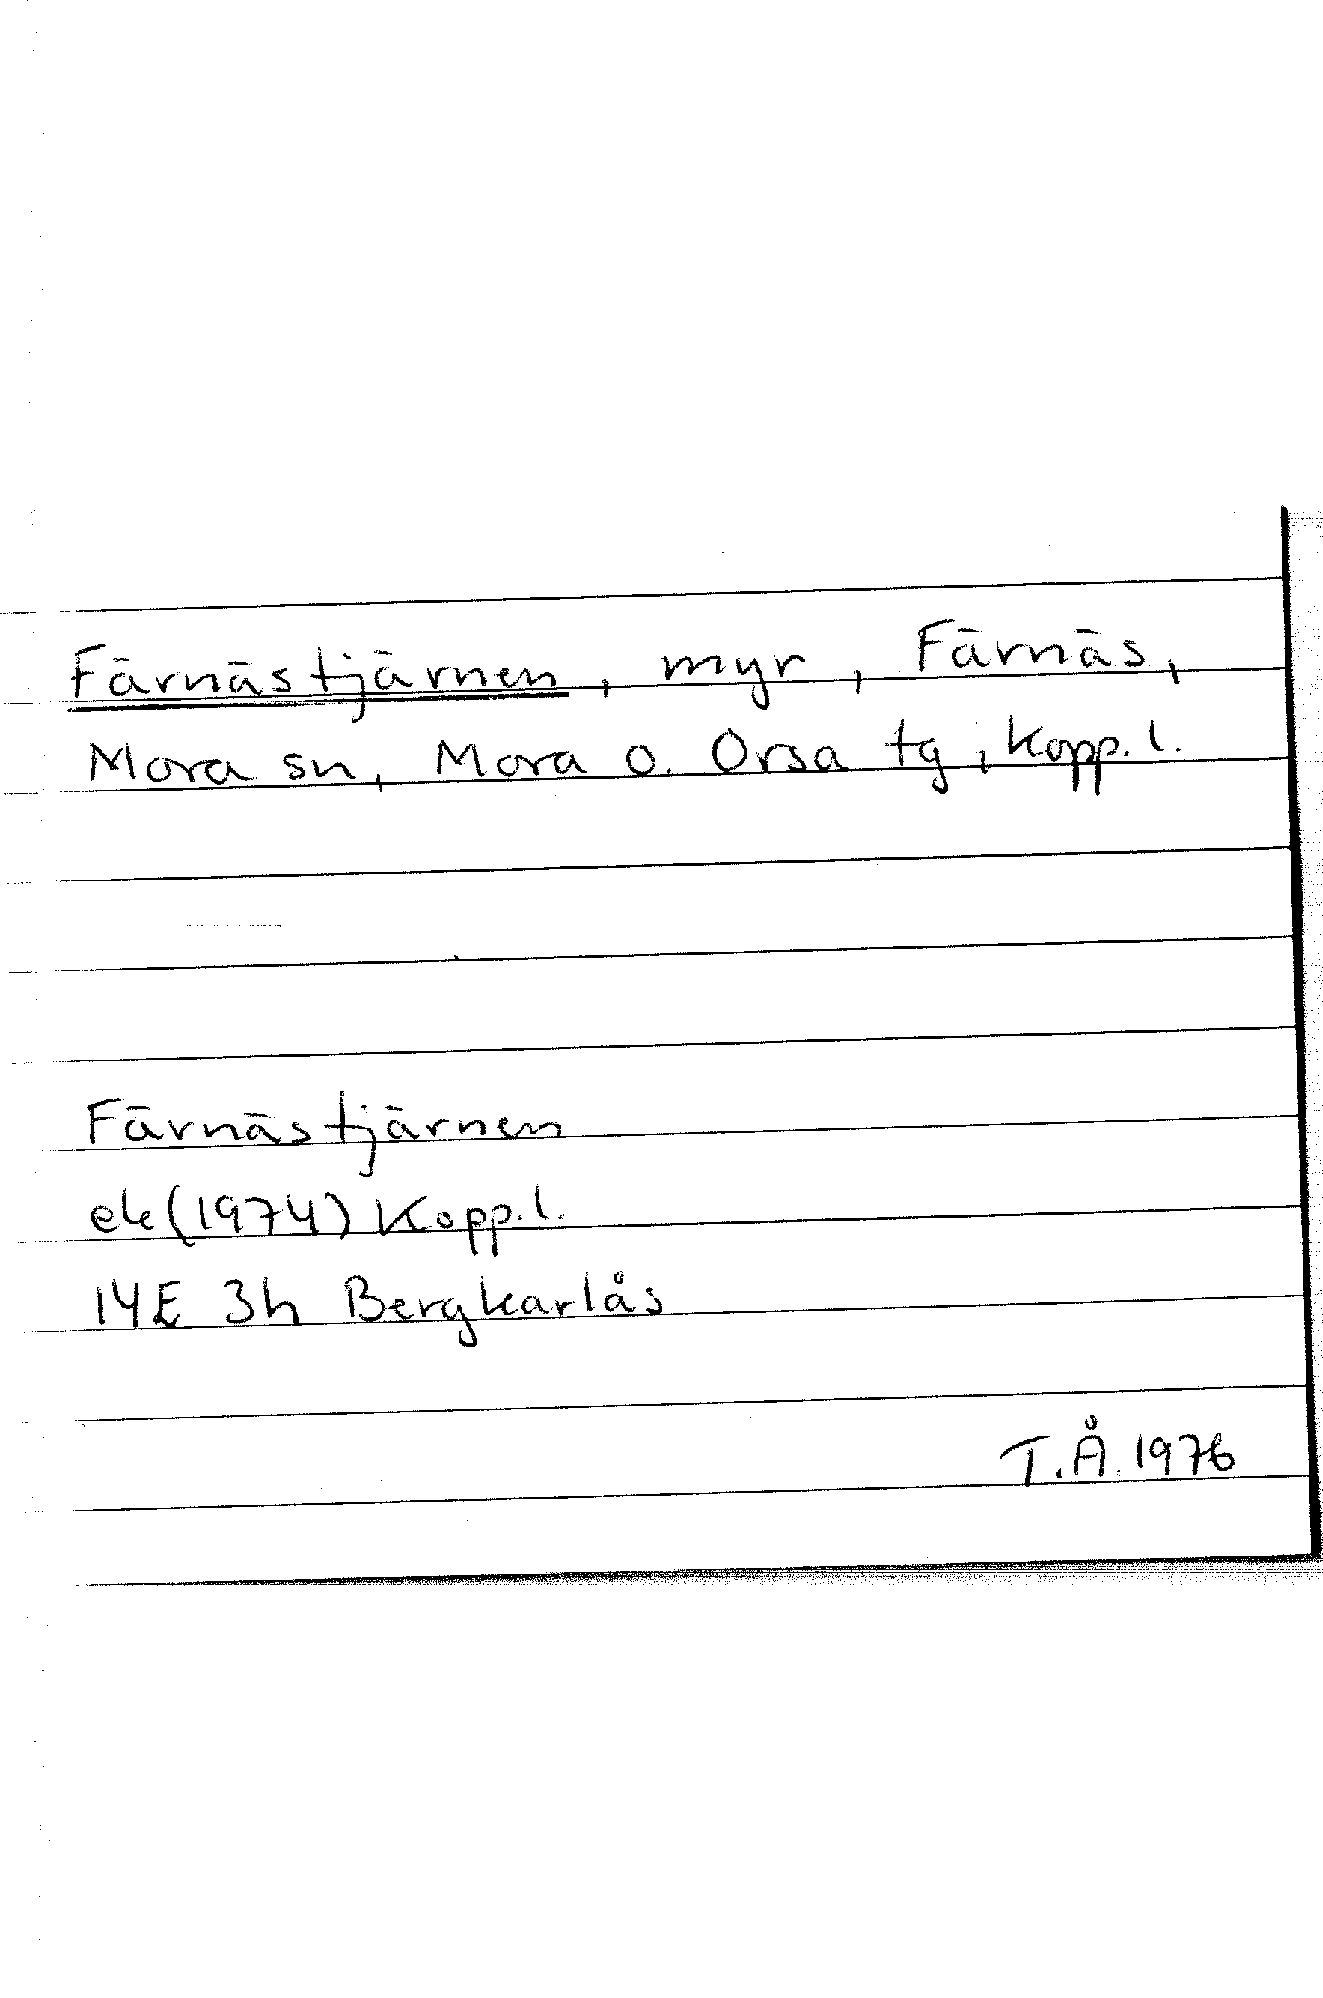 Färnästjärnen, myr, Färnäs,
Mora sn, Mora o. Orsa tg, Kopp.l.
Färnästjärnen
ek(1974) Kopp.l.
14E 3h Bergkarlås
T.Å. 1976